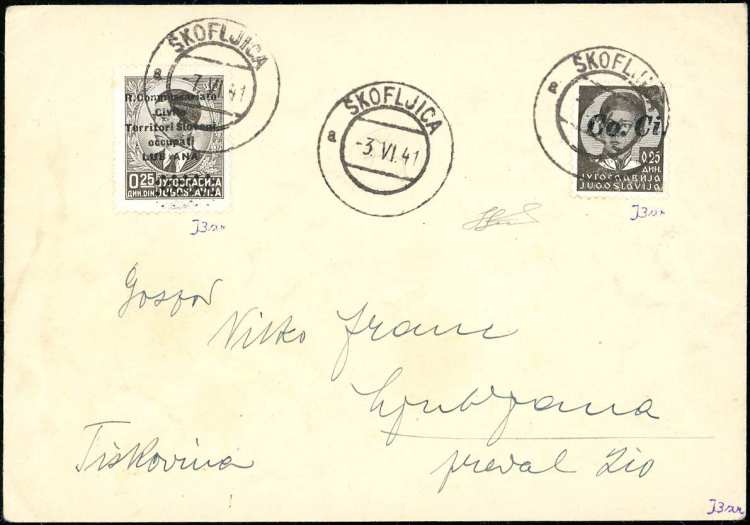 ŠKOFLJICA
a
-7.VI.41
R.Commissariato
Civile
Territori Sloveni
occupati
LUBIANA
0.25
ДИН. DIN.
ЈУГОСЛАВИЈА
JUGOSLAVIJA
ŠKOFLJICA
a
-3.VI.41
ŠKOFLJICA
a
Co. Ci
0.25
ДИН.
ЈУГОСЛАВИЈА
JUGOSLAVIJA
Gospod
Vilko Franc
Ljubljana
Tiskovina